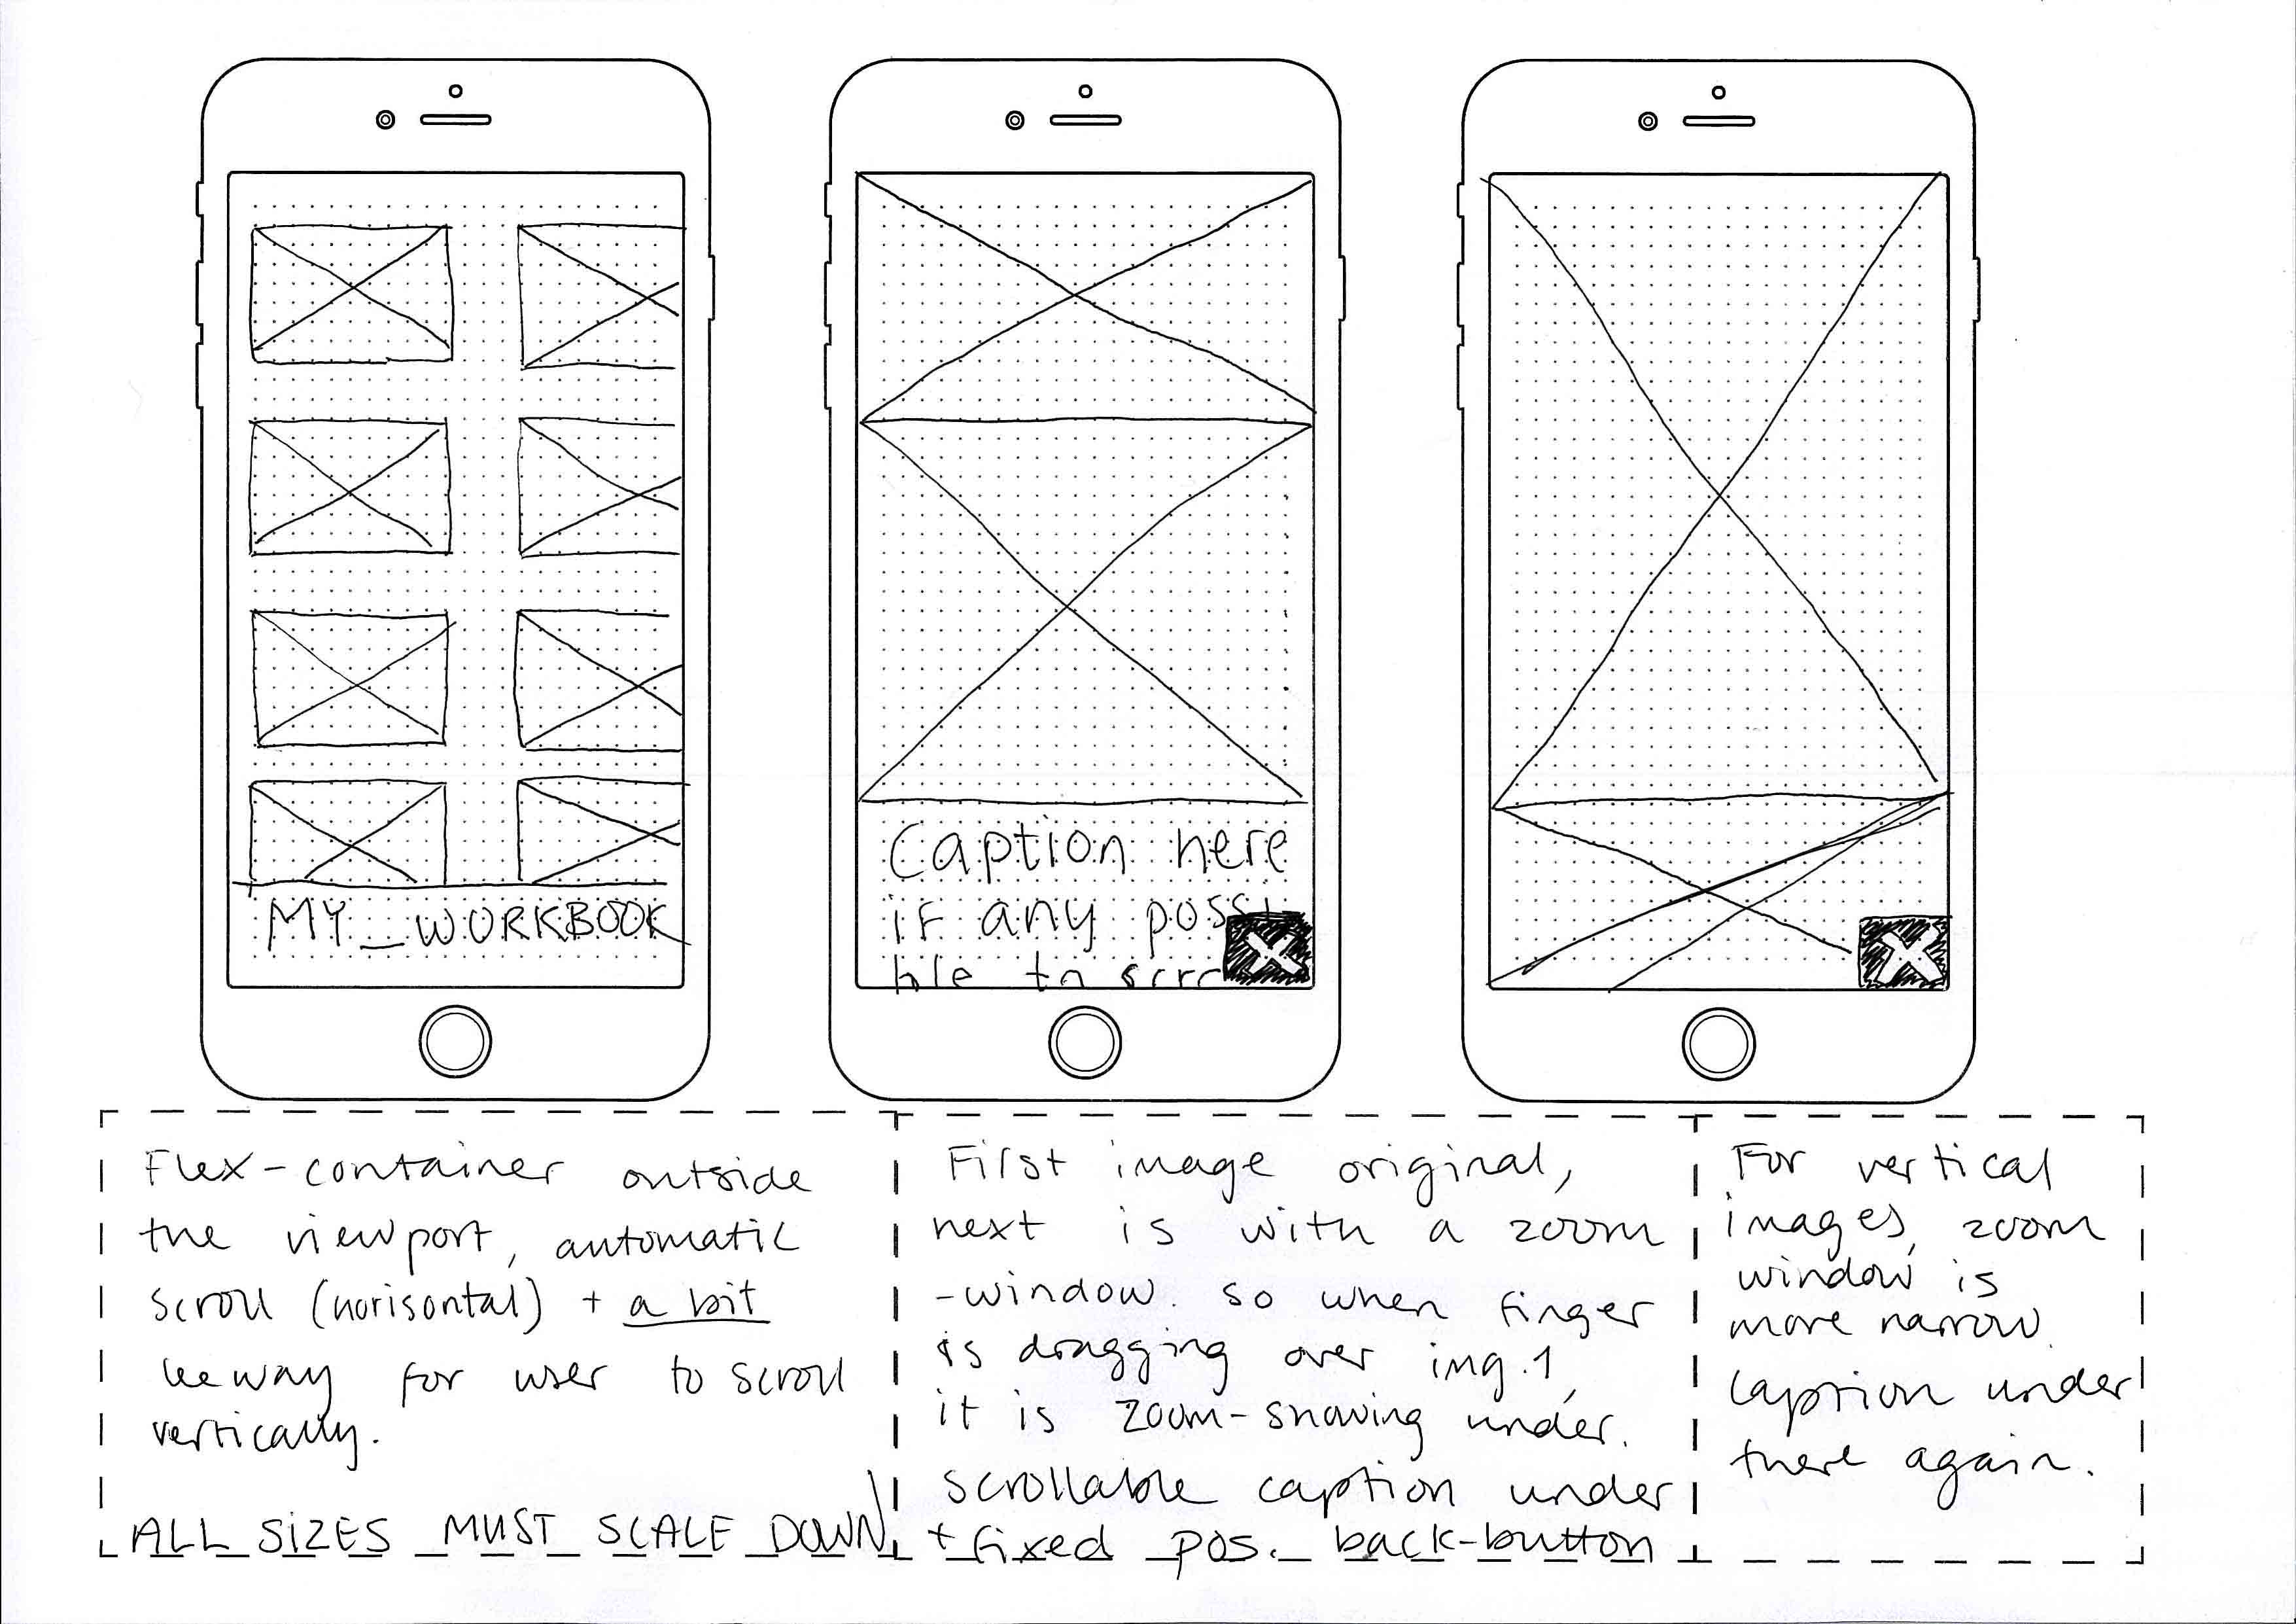 MY_WORKBOOK
Caption here
if any possi
ble to scro
Flex-container outside
the viewport, automatic
scroll (horisontal) + a bit
leeway for user to scroll
vertically.
ALL SIZES MUST SCALE DOWN
First image original,
next is with a zoom
-window. so when finger
is dragging over img.1,
it is zoom-showing under.
scrollable caption under
+ fixed pos. back-button
For vertical
images, zoom
window is
more narrow.
Caption under
there again.